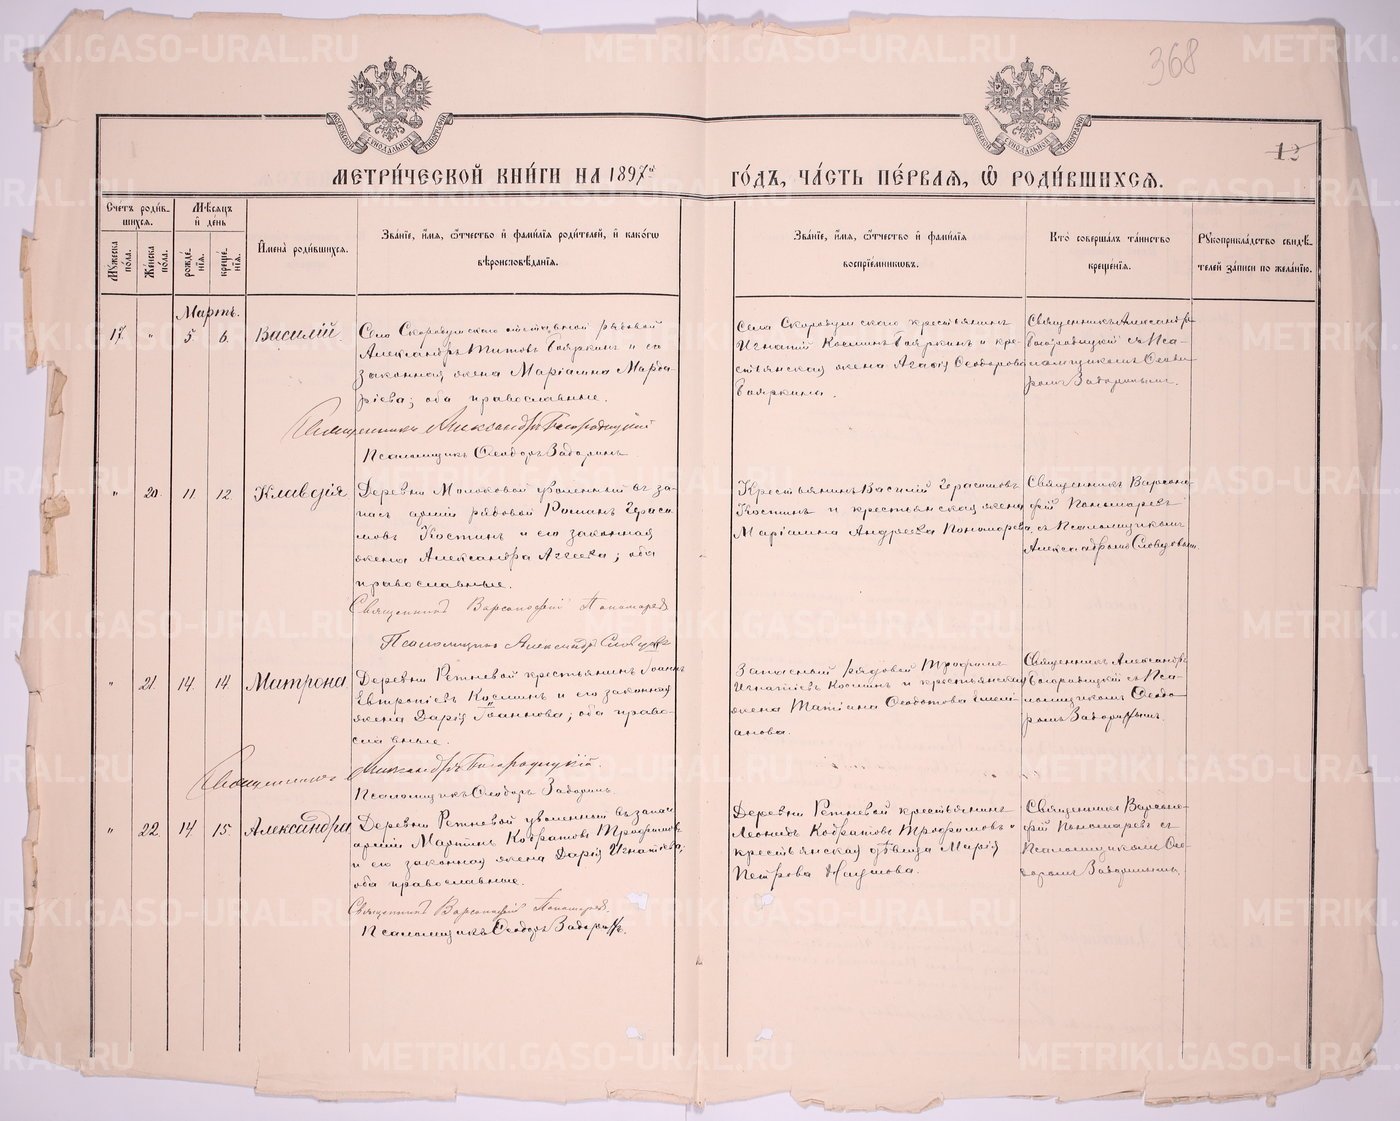 368
12
МОСКОВСКОЙ СѴНОДАЛЬНОЙ ТИПОГРАФІИ
МОСКОВСКОЙ СѴНОДАЛЬНОЙ ТИПОГРАФІИ
МЕТРИ́ЧЕСКОЙ КНИ́ГИ НА 1897й ГО́ДЪ, ЧА́СТЬ ПЕ́РВАѦ, Ѡ РОДИ́ВШИХСѦ.
Сче́тъ роди́в-
шихсѧ.
Мꙋ́жеска по́ла.
Же́нска по́ла.
Мѣ́сѧцъ
и҆ де́нь
рожде́нїѧ.
креще́нїѧ.
И҆мена̀ роди́вшихсѧ.
Зва́нїе, и҆́мѧ, ѻ҆́тчество и҆ фами́лїѧ роди́телей, и҆ како́гѡ
вѣроисповѣ́данїѧ.
Зва́нїе, и҆́мѧ, ѻ҆́тчество и҆ фами́лїѧ
воспрїе́мникѡвъ.
Кто̀ соверша́лъ та́инство
креще́нїѧ.
Рꙋкоприкла́дство свидѣ́-
телей за́писи по жела́нїю.
Мартъ.
17. " 5. 6. Василій.
Село Скоробумского отставной рядовой
Александръ Титовъ Бояркинъ и его
законная жена Маріамна Марда-
ріева; оба православные.
Священникъ Александръ Богородицкій
Псаломщикъ Ѳеодоръ Задоринъ
Села Скоробумского крестьянинъ
Игнатій Космин Бояркинъ и кре-
стьянская жена Агафія Ѳеодорова
Бояркина.
Священникъ Александръ
Богородицкій съ Пса-
ломщикомъ Ѳеодо-
ромъ Задоринымъ.
" 20. 11. 12. Клавдія
Деревни Молоковой уволенный въ за-
пасъ арміи рядовой Романъ Гераси-
мовъ Костинъ и его законная
жена Александра Аггеева; оба
православные.
Священникъ Варсонофій Пономаревъ
Псаломщикъ Александръ Словцовъ
Крестьянинъ Василій Герасимовъ
Костинъ и крестьянская жена
Маріамна Андреева Пономарева.
Священникъ Варсоно-
фій Пономаревъ
съ Псаломщикомъ
Александромъ Словцовымъ.
" 21. 14. 14. Матрона
Деревни Ретневой крестьянинъ Іоаннъ
Евтропіевъ Косминъ и его законная
жена Дарія Іоаннова; оба право-
славные.
Священникъ Александръ Богородицкій.
Псаломщикъ Ѳеодоръ Задоринъ.
Запасный рядовой Трофимъ
Игнатіевъ Косминъ и крестьянская
жена Татіана Ѳедотова Емелі-
анова.
Священникъ Александръ
Богородицкій съ Пса-
ломщикомъ Ѳеодо-
ромъ Задоринымъ.
" 22. 14. 15. Александра
Деревни Ретневой уволенный въ запасъ
арміи Мартинъ Кодратовъ Трофимовъ
и его законная жена Дарія Игнатіева;
оба православные.
Священникъ Варсонофій Пономаревъ.
Псаломщикъ Ѳеодоръ Задоринъ.
Деревни Ретневой крестьянинъ
Леонидъ Кодратовъ Трофимовъ и
крестьянская дѣвица Марія
Петрова Наумова.
Священникъ Варсоно-
фій Пономаревъ съ
Псаломщикомъ Ѳео-
доромъ Задоринымъ.
METRIKI.GASO-URAL.RU